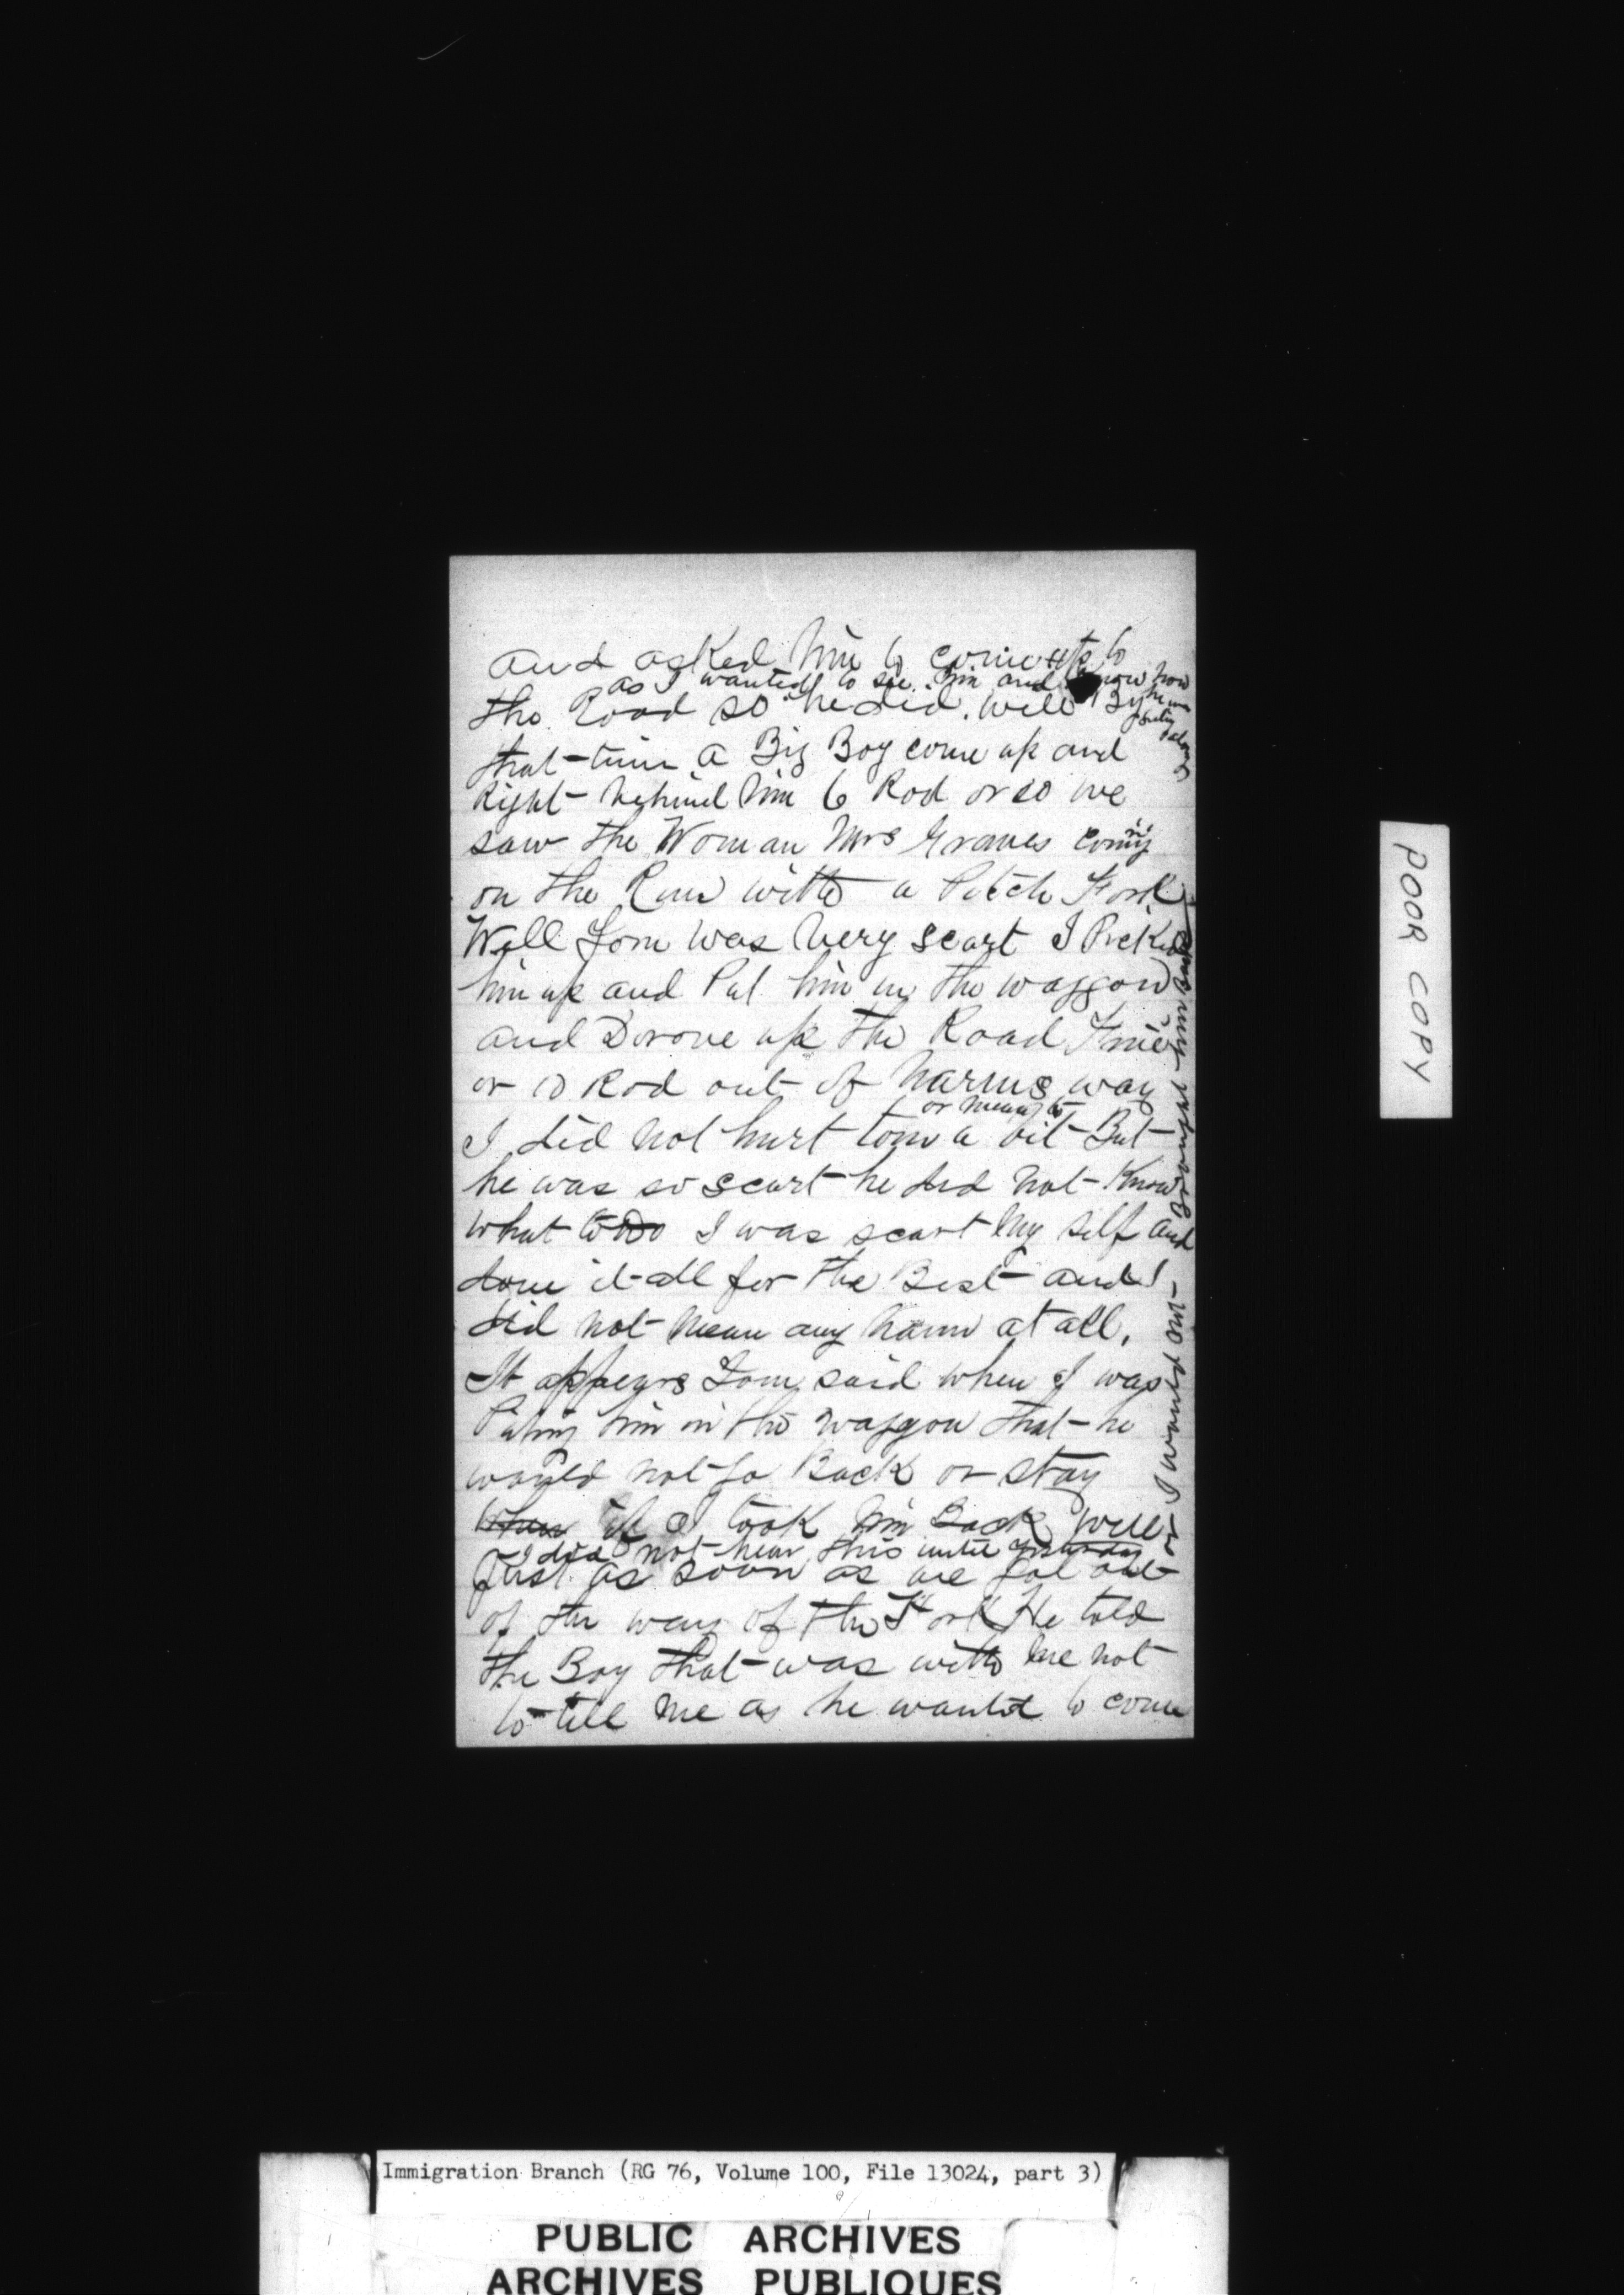 and asked him to come up to
as I wanted to see him and know how
he was
geting
along
the Road so he did. Well By
that time a Big Boy come up and
Right behind him 6 Rod or so we
saw the Woman Mrs Graves coming
on the Run with a Pitch Fork
Well Tom was very scart I Picked
him up and Put him in the waggon
and Drove up the Road
or 10 Rod out of harms way
or mean to
I did not hurt tom a bit But
he was so scart he did not Know
what to Do I was scart my self and
done it all for the Best and I
did not mean any harm at all.
It appears Tom said when I was
Puting him in the waggon that he
would not go Back or stay
when if I took him Back Well
I did not hear this until yesterday
or I would not
Brought him back
Just as soon as we got out
of the way of the Fork He told
the Boy that was with me not
to tell me as he wanted to come
POOR COPY
Immigration Branch (RG 76, Volume 100, File 13024, part 3)
PUBLIC ARCHIVES
ARCHIVES PUBLIQUES